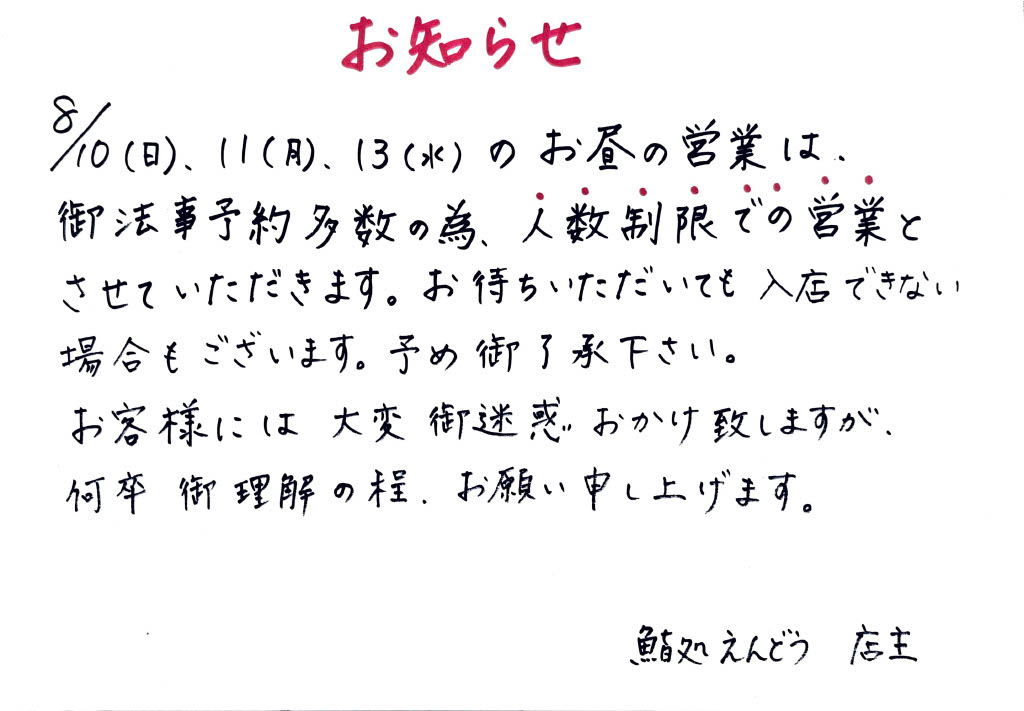 お知らせ
8/10(日)、11(月)、13(水)のお昼の営業は、
御法事予約多数の為、人数制限での営業と
させていただきます。お待ちいただいても入店できない
場合もございます。予め御了承下さい。
お客様には大変御迷惑おかけ致しますが、
何卒御理解の程、お願い申し上げます。
鮨処えんどう 店主